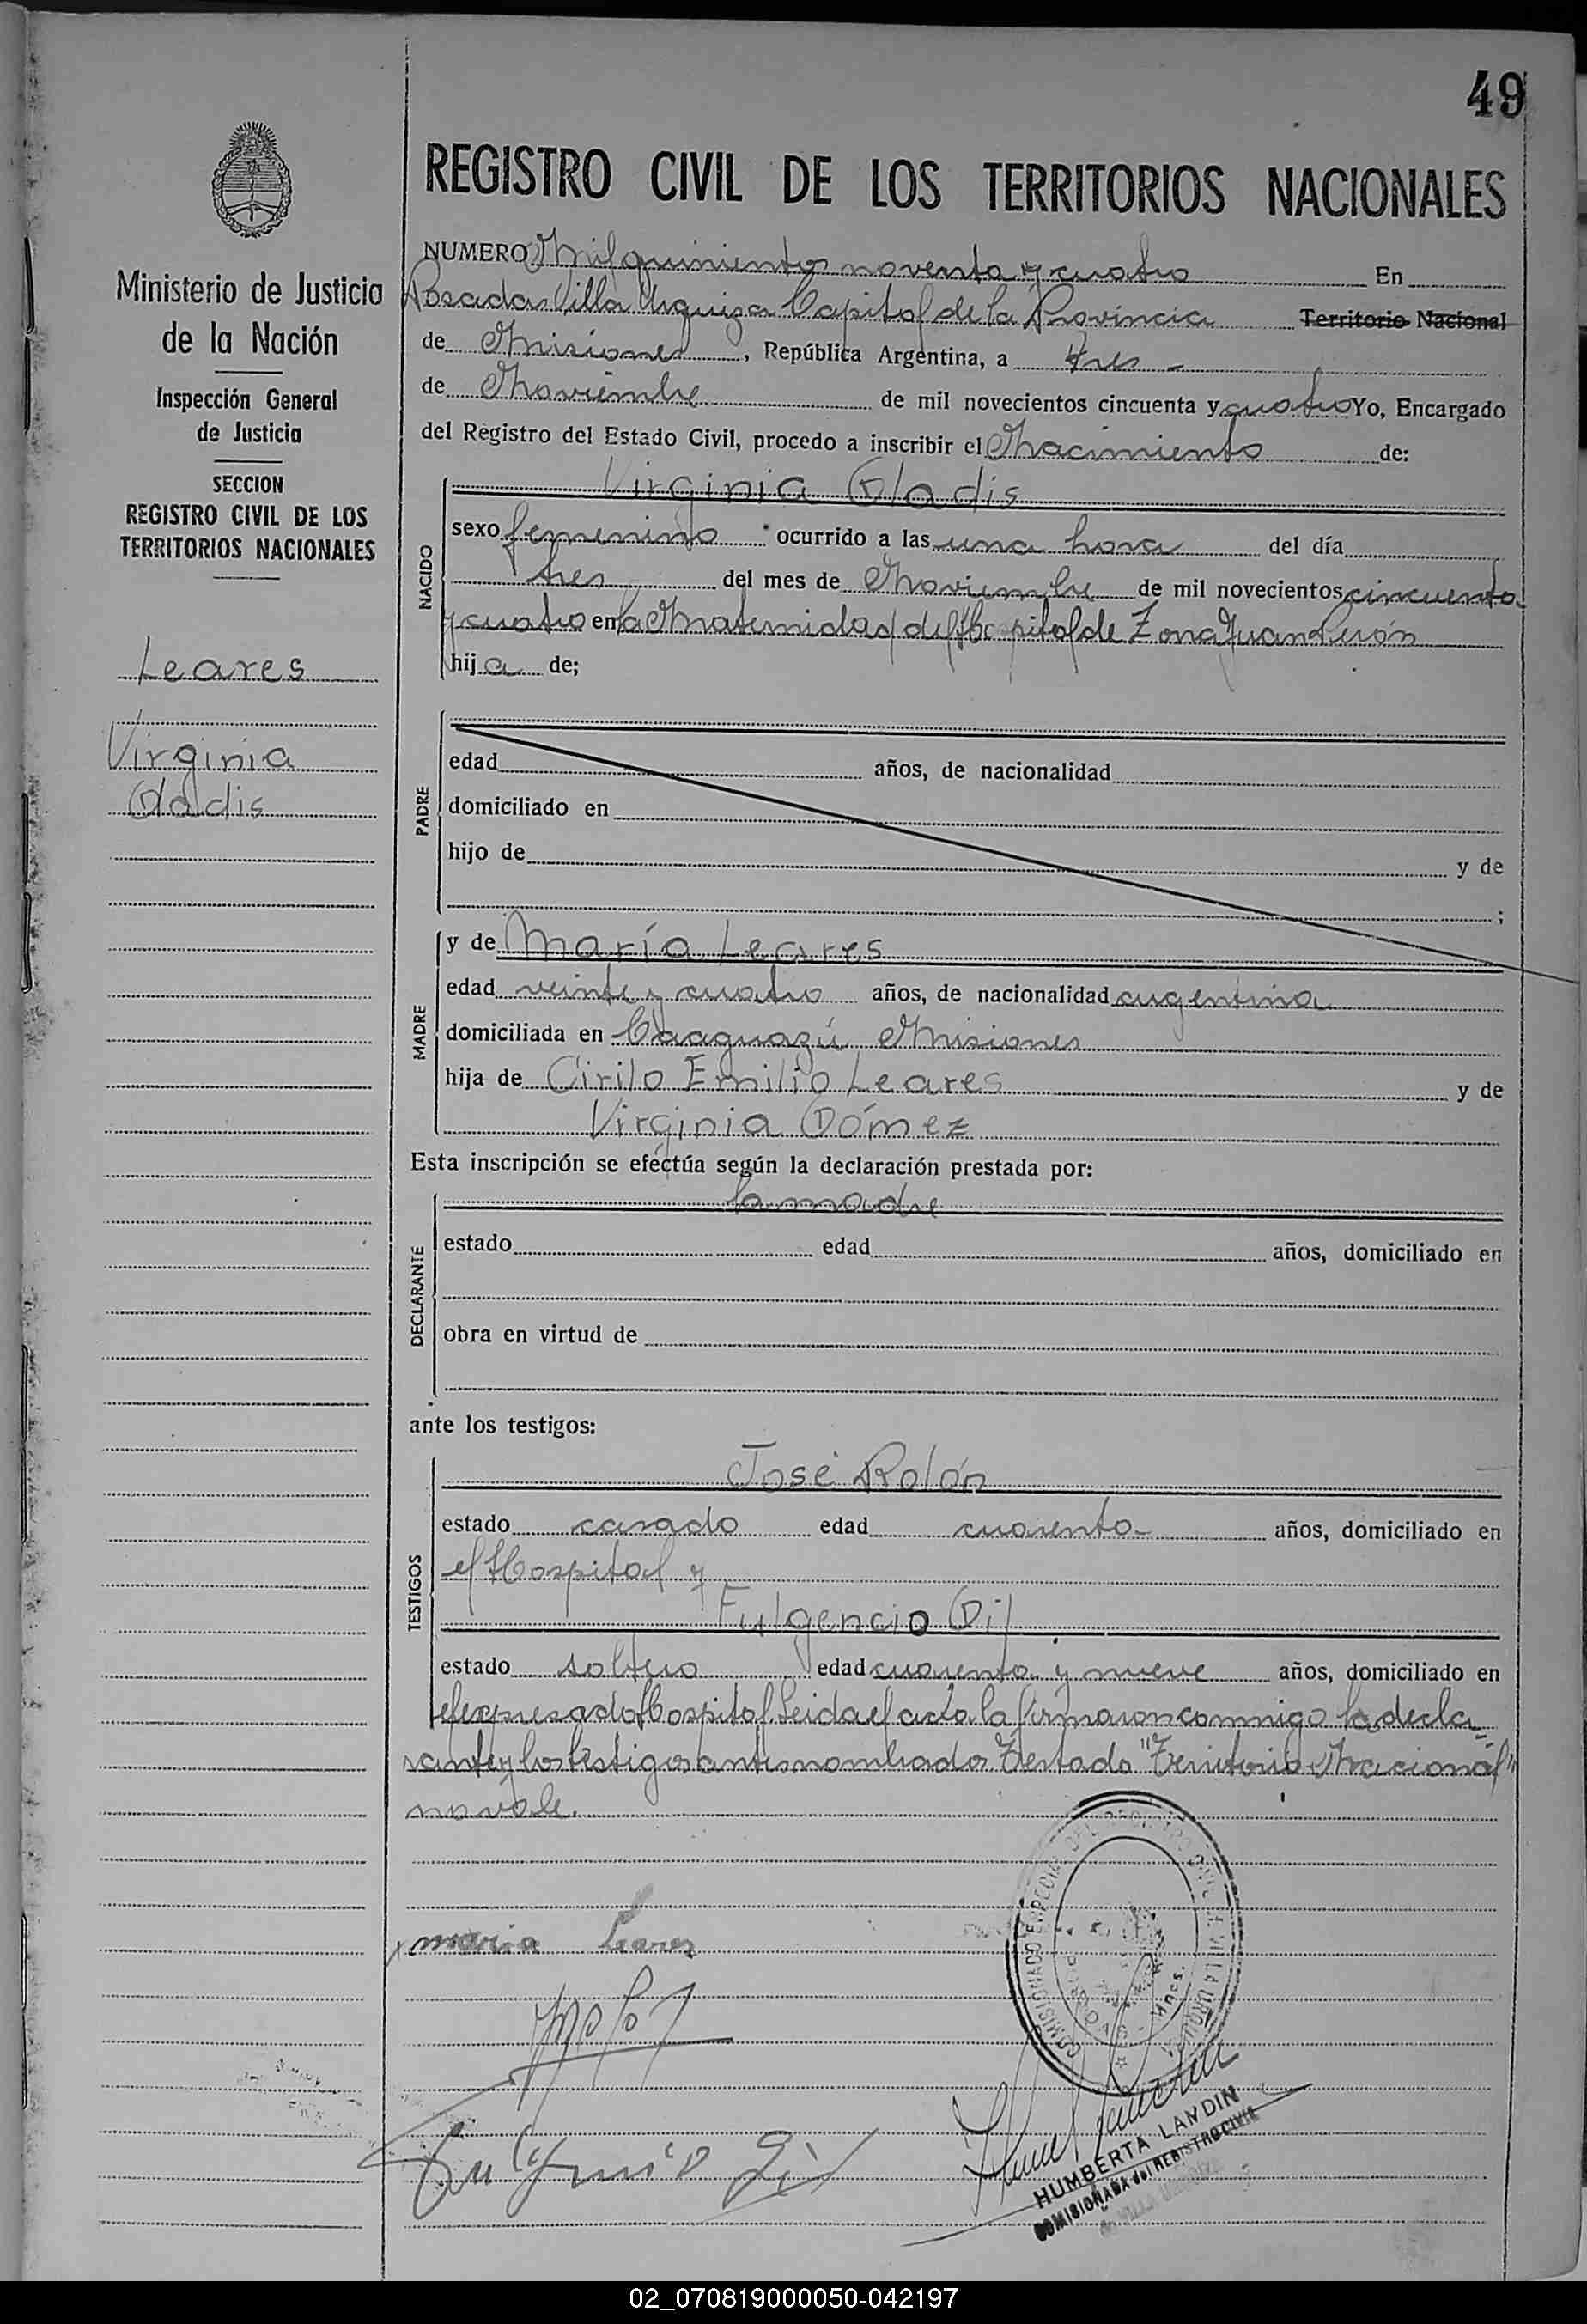 49
REGISTRO CIVIL DE LOS TERRITORIOS NACIONALES
Ministerio de Justicia
de la Nación
Inspección General
de Justicia
SECCION
REGISTRO CIVIL DE LOS
TERRITORIOS NACIONALES
Leares
Virginia
Gladis
NUMERO Mil quinientos noventa y cuatro En
Posadas Villa Urquiza Capital de la Provincia Territorio Nacional
de Misiones, República Argentina, a tres -
de Noviembre de mil novecientos cincuenta y cuatro Yo, Encargado
del Registro del Estado Civil, procedo a inscribir el Nacimiento de:
Virginia Gladis
NACIDO
sexo femenino ocurrido a las una hora del día
tres del mes de Noviembre de mil novecientos cincuenta
y cuatro en la Maternidad del Hospital de Zona Juan Perón
hija de;
PADRE
edad años, de nacionalidad
domiciliado en
hijo de y de
;
MADRE
y de María Leares
edad veinte y cuatro años, de nacionalidad argentina
domiciliada en Caaguazú Misiones
hija de Cirilo Emilio Leares y de
Virginia Gómez
Esta inscripción se efectúa según la declaración prestada por:
la madre
DECLARANTE
estado edad años, domiciliado en
obra en virtud de
ante los testigos:
José Rolón
TESTIGOS
estado casado edad cuarenta años, domiciliado en
el Hospital y
Fulgencio Gil
estado soltero edad cuarenta y nueve años, domiciliado en
el expresado Hospital. Leida el acta la firmaron conmigo la decla
rante y los testigos antes nombrados. Testado "Territorio Nacional"
no vale.
maria Leares
Fulgencio Gil
COMISIONADO ESPECIAL DEL REGISTRO CIVIL VILLA URQUIZA
POSADAS - Mnes.
HUMBERTA LANDIN
COMISIONADA del REGISTRO CIVIL
02_070819000050-042197